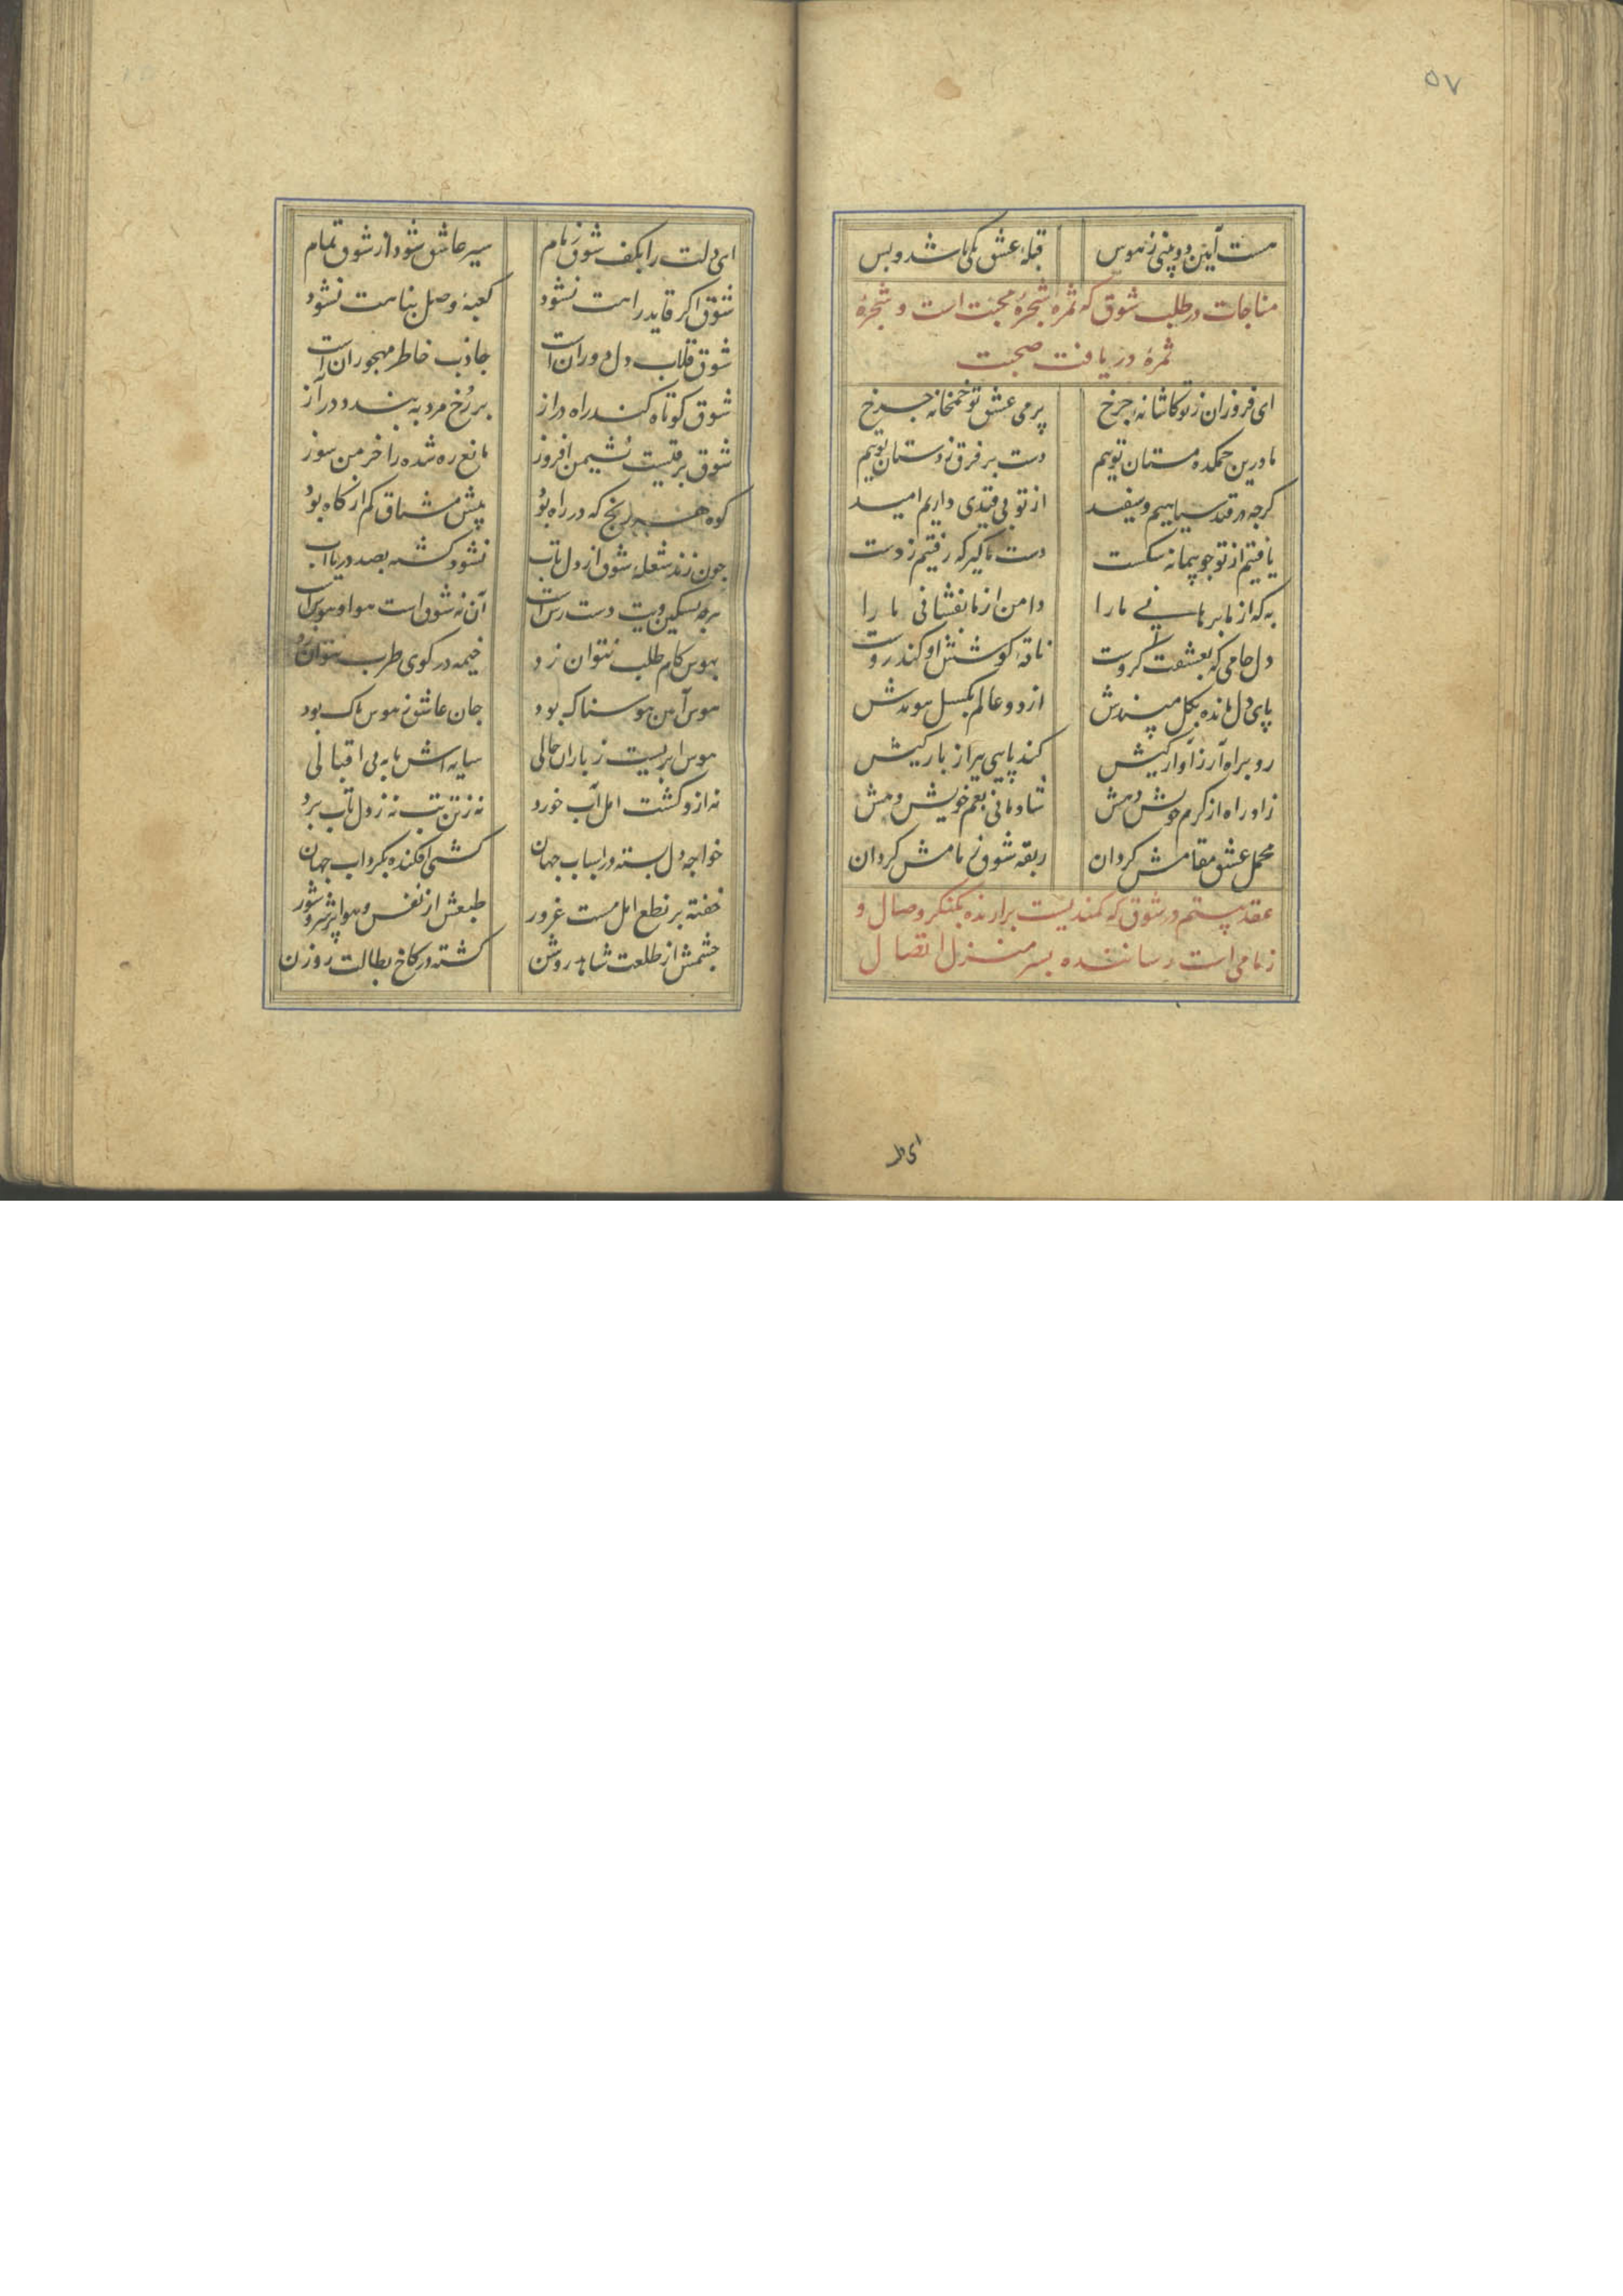 ۵۷
هست آیین دو بینی ز هوس قبله عشق یکی باشد و بس
مناجات در طلب شوق که ثمرهٔ شجرهٔ محبت است و شجرهٔ
ثمرهٔ دریافت صحبت
ای فروزان ز تو کاشانه چرخ پر می عشق تو خمخانه چرخ
ما درین خمکده مستان توییم دست بر فرق ز دستان توییم
کرچه در قید سیاهیم و سفید از تو بی قیدی داریم امید
یافتیم از تو چو پیمانه شکست دست ما کیر که رفتیم ز دست
به که از ما برهانی ما را دامن از ما نفشانی ما را
دل جامی که بعشقت کروست ناقهٔ کوشش او کندروست
پای دل مانده بکل مپسندش از دو عالم بکسل پیوندش
رو براه آر ز آوارکیش کند پایی ببر از بارکیش
زاد راه از کرم خویش دهش شادمانی بغم خویش دهش
محمل عشق مقامش کردان ربقه شوق زمامش کردان
عقد بیستم در شوق که کمندیست برارنده بکنکر وصال و
زمامی است رساننده بسر منزل اتصال
ای دلت
ای دلت را بکف شوق زمام سیر عاشق شود از شوق تمام
شوق اکر قاید راهت نشود کعبهٔ وصل پناهت نشود
شوق قلاب دل دوران است جاذب خاطر مهجوران است
شوق کوتاه کند راه دراز بر رخ مرد به بندد در آز
شوق برقیست نشیمن افروز مانع ره شده را خرمن سوز
کوه هر رنج که در راه بود پیش مشتاق کم از کاه بود
چون زند شعله شوق از دل تاب نشود کشته بصد دریا آب
هرچه تسکین ویت دست رس است آن نه شوق است هوا و هوس است
بهوس کام طلب نتوان زد خیمه در کوی طرب نتوان زد
هوس آمن هوسناک بود جان عاشق ز هوس پاک بود
هوس ابریست ز باران خالی سایه اش مایه بی اقبالی
نه ازو کشت امل آب خورد نه ز تن تب نه ز دل تاب برد
خواجه دل بسته در اسباب جهان کشتی افکنده بکرداب جهان
خفته بر نطع امل مست غرور طبعش از نفس و هوا پر شر و شور
چشمش از طلعت شاهد روشن کشته در کاخ بطالت روزن